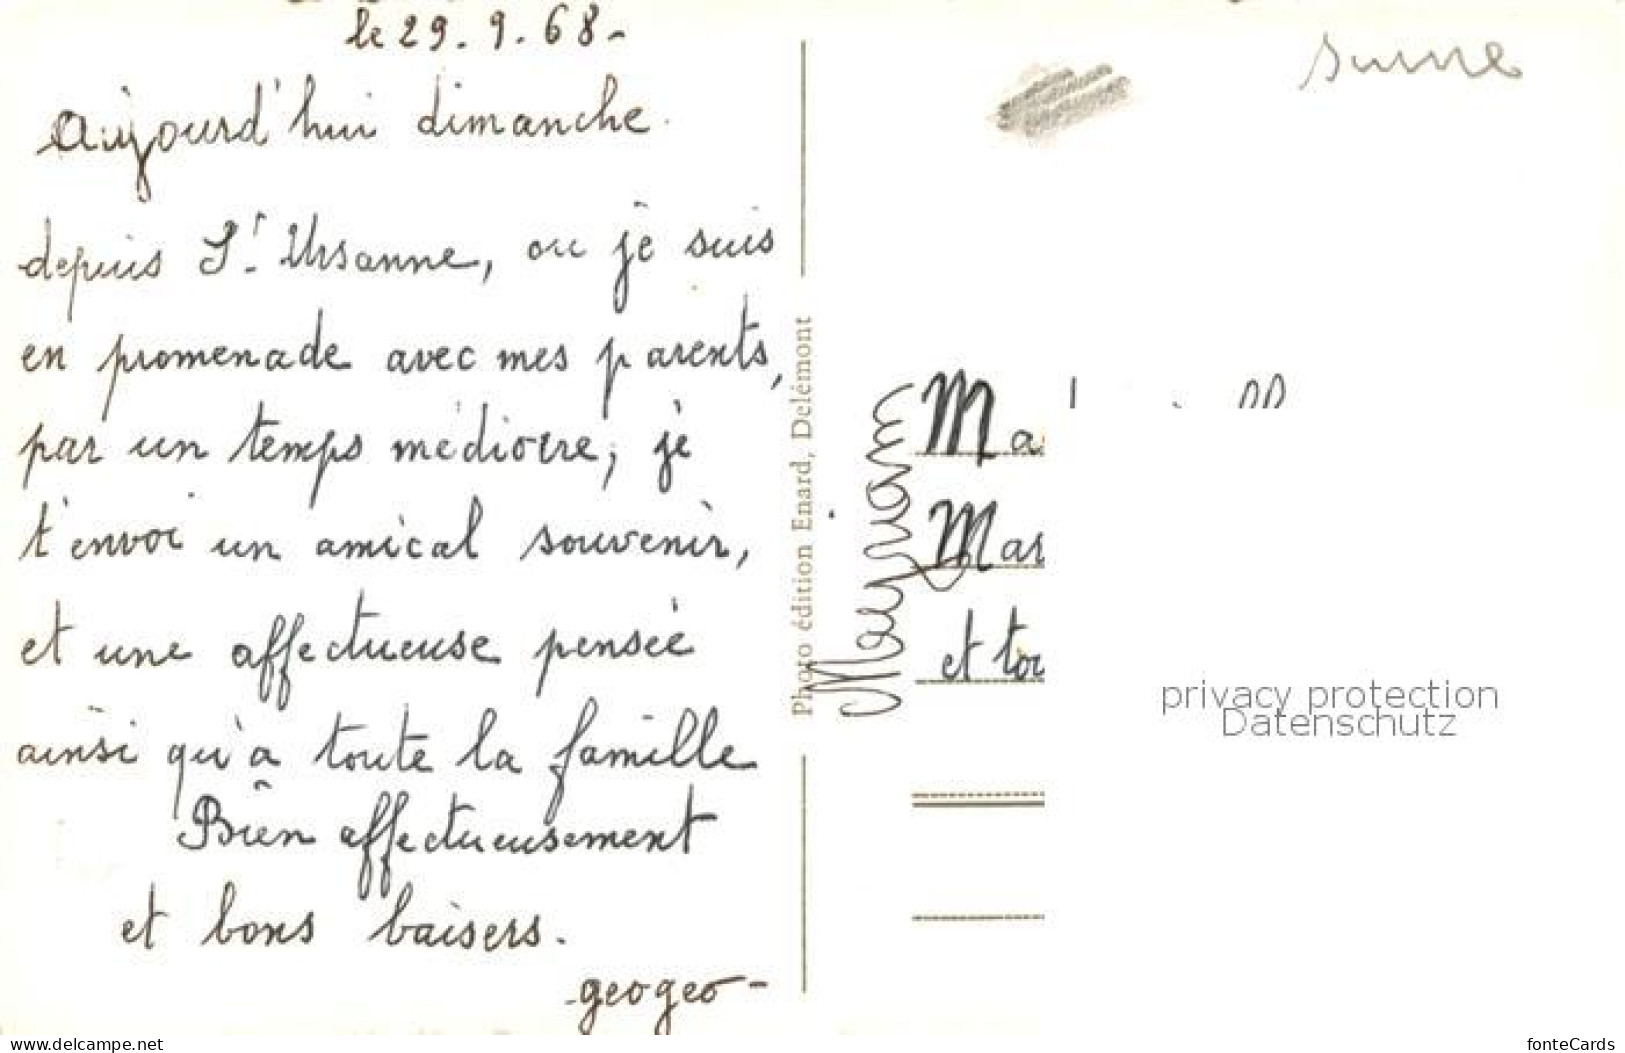 le 29. 9. 68-
Aujourd'hui dimanche.
depuis St. Ursanne, ou je suis
en promenade avec mes parents,
par un temps médiocre, je
t'envoi un amical souvenir,
et une affectueuse pensée
ainsi qu'a toute la famille
Bien affectueusement
et bons baisers.
-geogeo-
Photo édition Enard, Delémont
Suisse
Ma
Mar
et tou
privacy protection
Datenschutz
www.delcampe.net
fonteCards